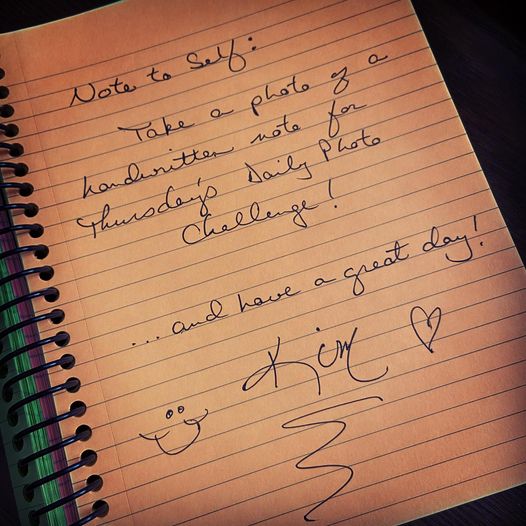 Note to Self:
Take a photo of a
handwritten note for
Thursday's Daily Photo
Challenge!
...and have a great day!
Kim